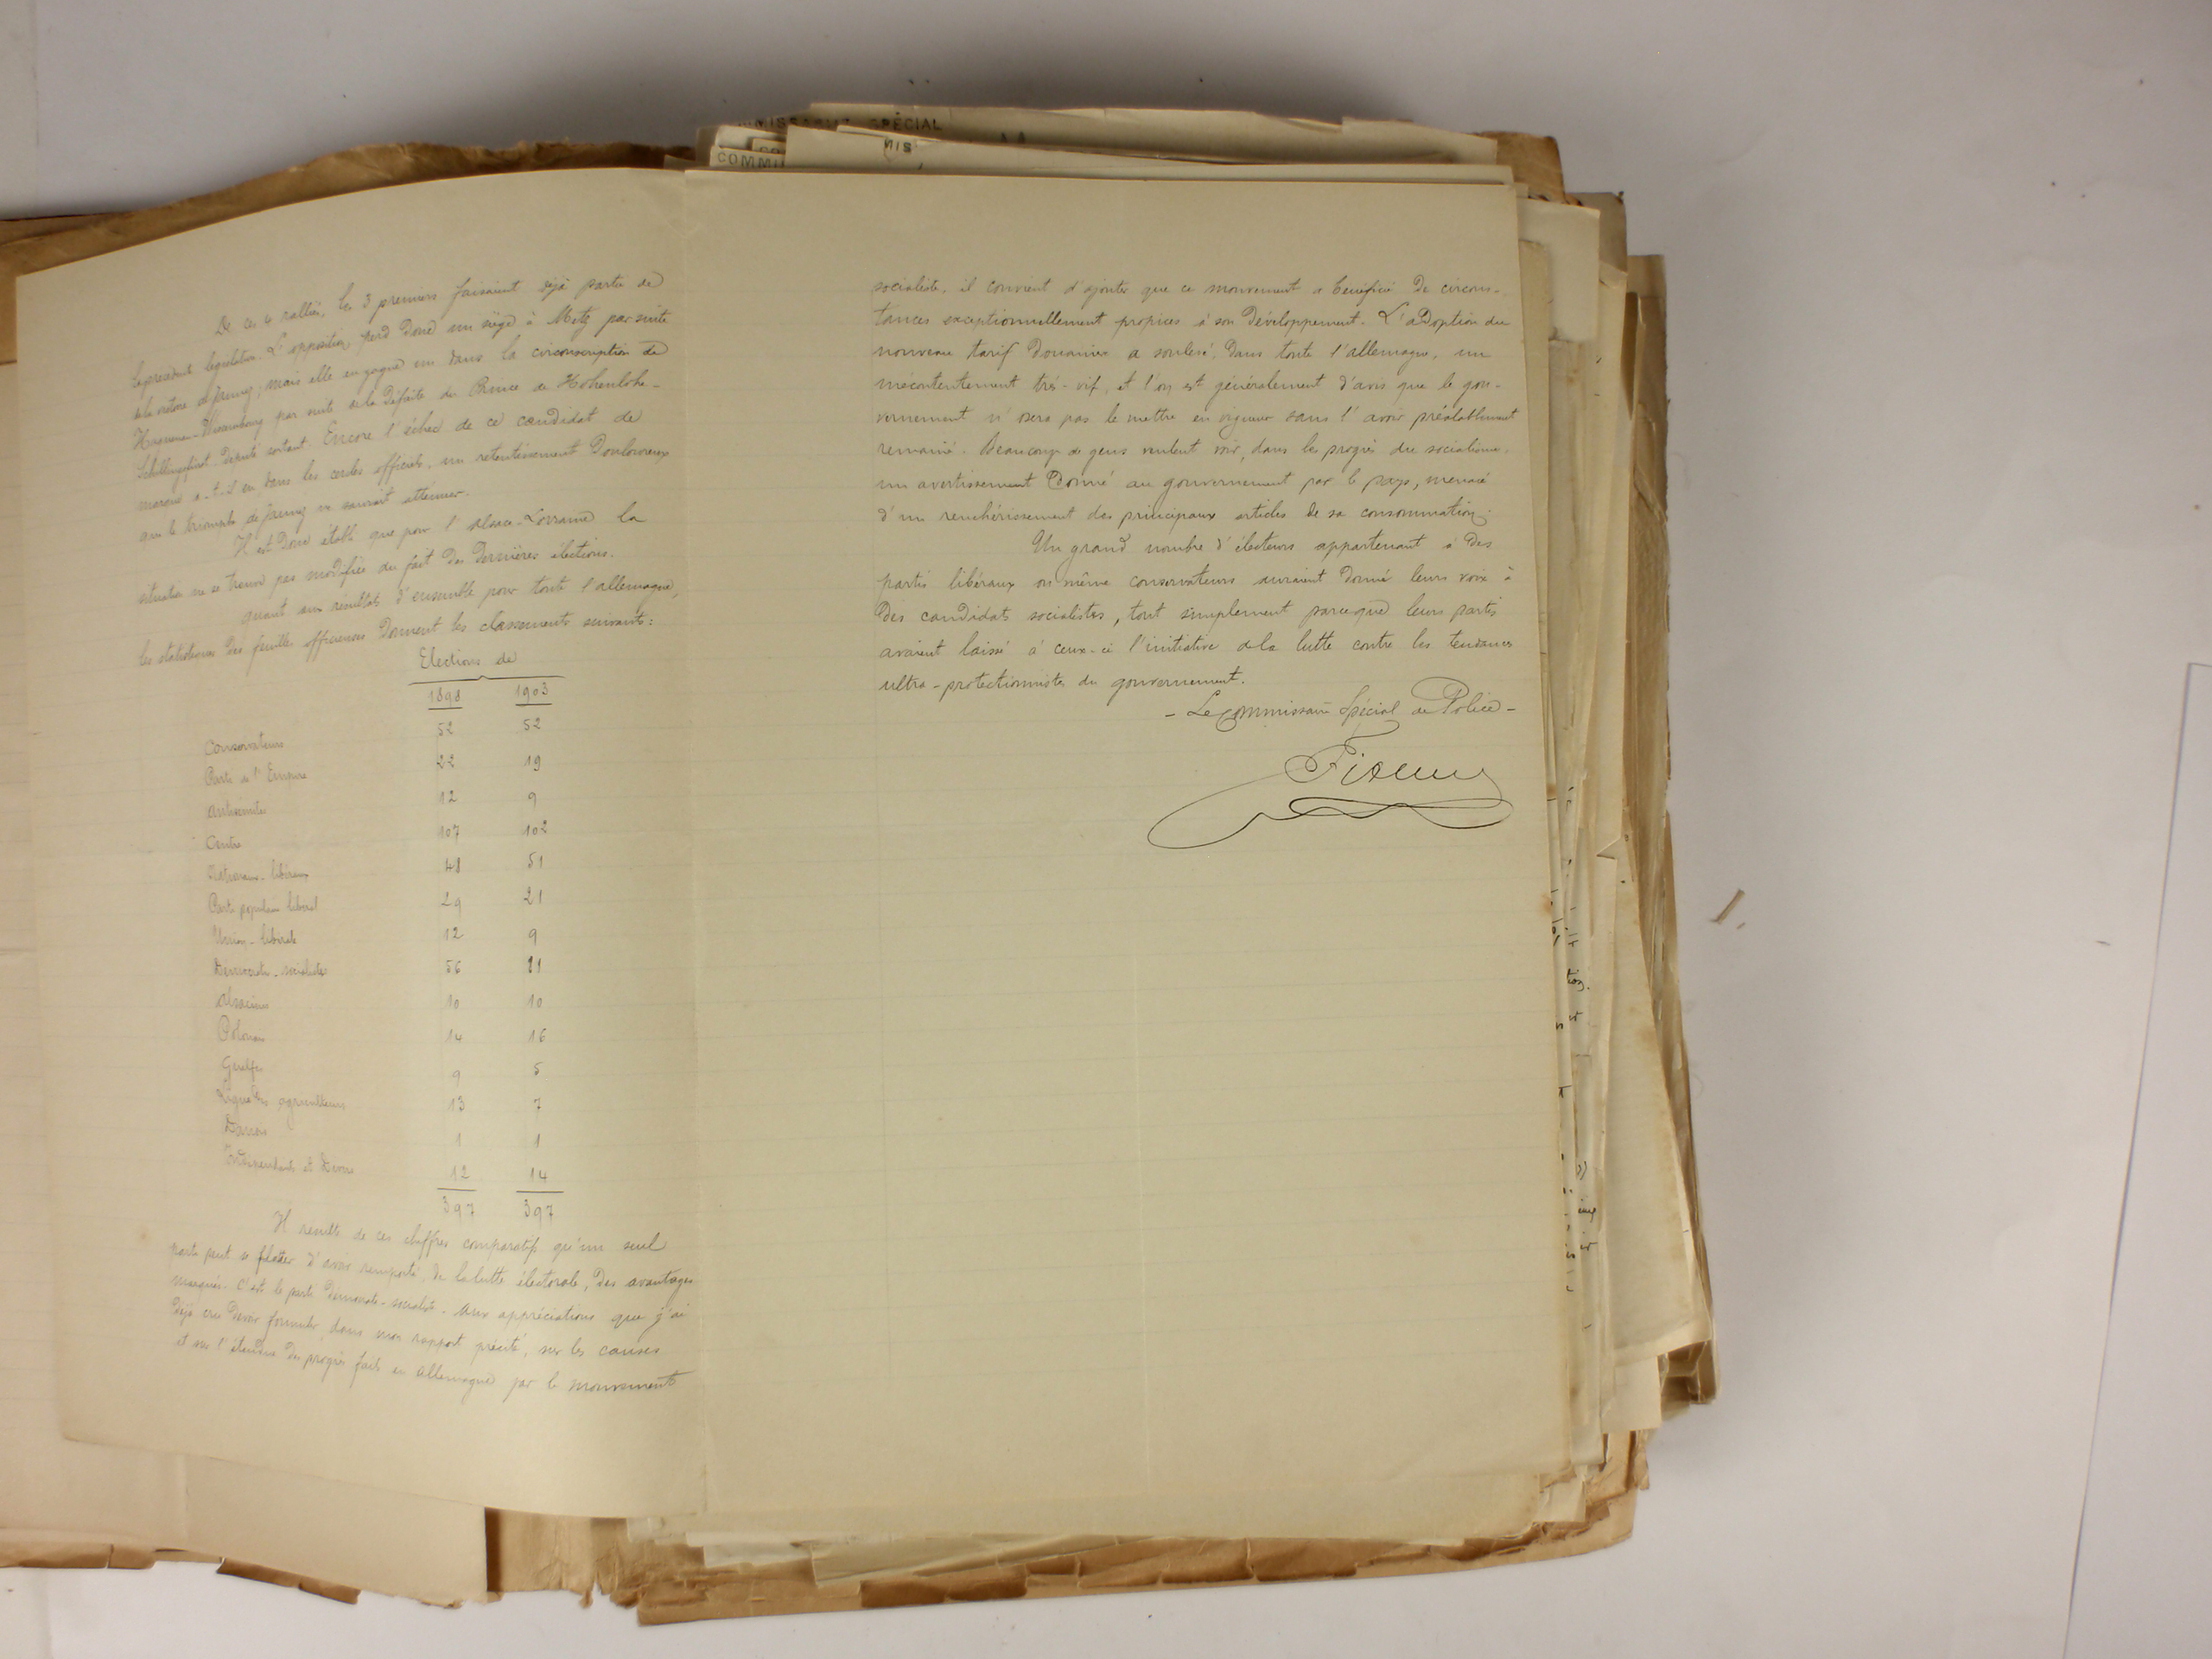 MISSARIAT SPÉCIAL
MIS
COMMI
De ces 4 ralliés, les 3 premiers faisaient déjà partie de
la précédente législation. L'opposition, perd donc un siège à Metz par suite
de la victoire de Jaunez; mais elle en gagne un dans la circonscription de
Haguenau-Wissembourg par suite de la défaite du Prince de Hohenlohe-
Schillingsfürst député sortant. Encore l'échec de ce candidat de
marque a-t-il eu, dans les cercles officiels, un retentissement douloureux
que le triomphe de Jaunez ne saurait atténuer.
Il est donc établi que pour l'Alsace-Lorraine la
situation ne se trouve pas modifiée du fait des dernières élections.
Quant aux résultats d'ensemble pour toute l'allemagne,
les statistiques des feuilles officieuses donnent les classements suivants:
Elections de
1898 1903
Conservateurs 52 52
Parti de l'Empire 22 19
Antisémites 12 9
Centre 107 102
Nationaux-libéraux 48 51
Parti populaire libéral 29 21
Union-libérale 12 9
Démocrates-socialistes 56 81
Alsaciens 10 10
Polonais 14 16
Guelfes 9 5
Ligue des agriculteurs 13 7
Danois 1 1
Indépendants et Divers 12 14
397 397
Il résulte de ces chiffres comparatifs qu'un seul
parti peut se flatter d'avoir remporté, de la lutte électorale, des avantages
marqués. C'est le parti démocrate-socialiste. Aux appréciations que j'ai
déjà cru devoir formuler, dans mon rapport précité, sur les causes
et sur l'étendue des progrès faits en allemagne par le mouvement
socialiste, il convient d'ajouter que ce mouvement a bénéficié de circons-
tances exceptionnellement propices à son développement. L'adoption du
nouveau tarif douanier a soulevé, dans toute l'allemagne, un
mécontentement très-vif, et l'on est généralement d'avis que le gou-
vernement n'osera pas le mettre en vigueur sans l'avoir préalablement
remanié. Beaucoup de gens veulent voir, dans les progrès du socialisme,
un avertissement donné au gouvernement par le pays, menacé
d'un renchérissement des principaux articles de sa consommation.
Un grand nombre d'électeurs appartenant à des
partis libéraux ou même conservateurs auraient donné leurs voix à
des candidats socialistes, tout simplement parceque leurs partis
avaient laissé à ceux-ci l'initiative de la lutte contre les tendances
ultra-protectionnistes du gouvernement.
- Le Commissaire Spécial de Police -